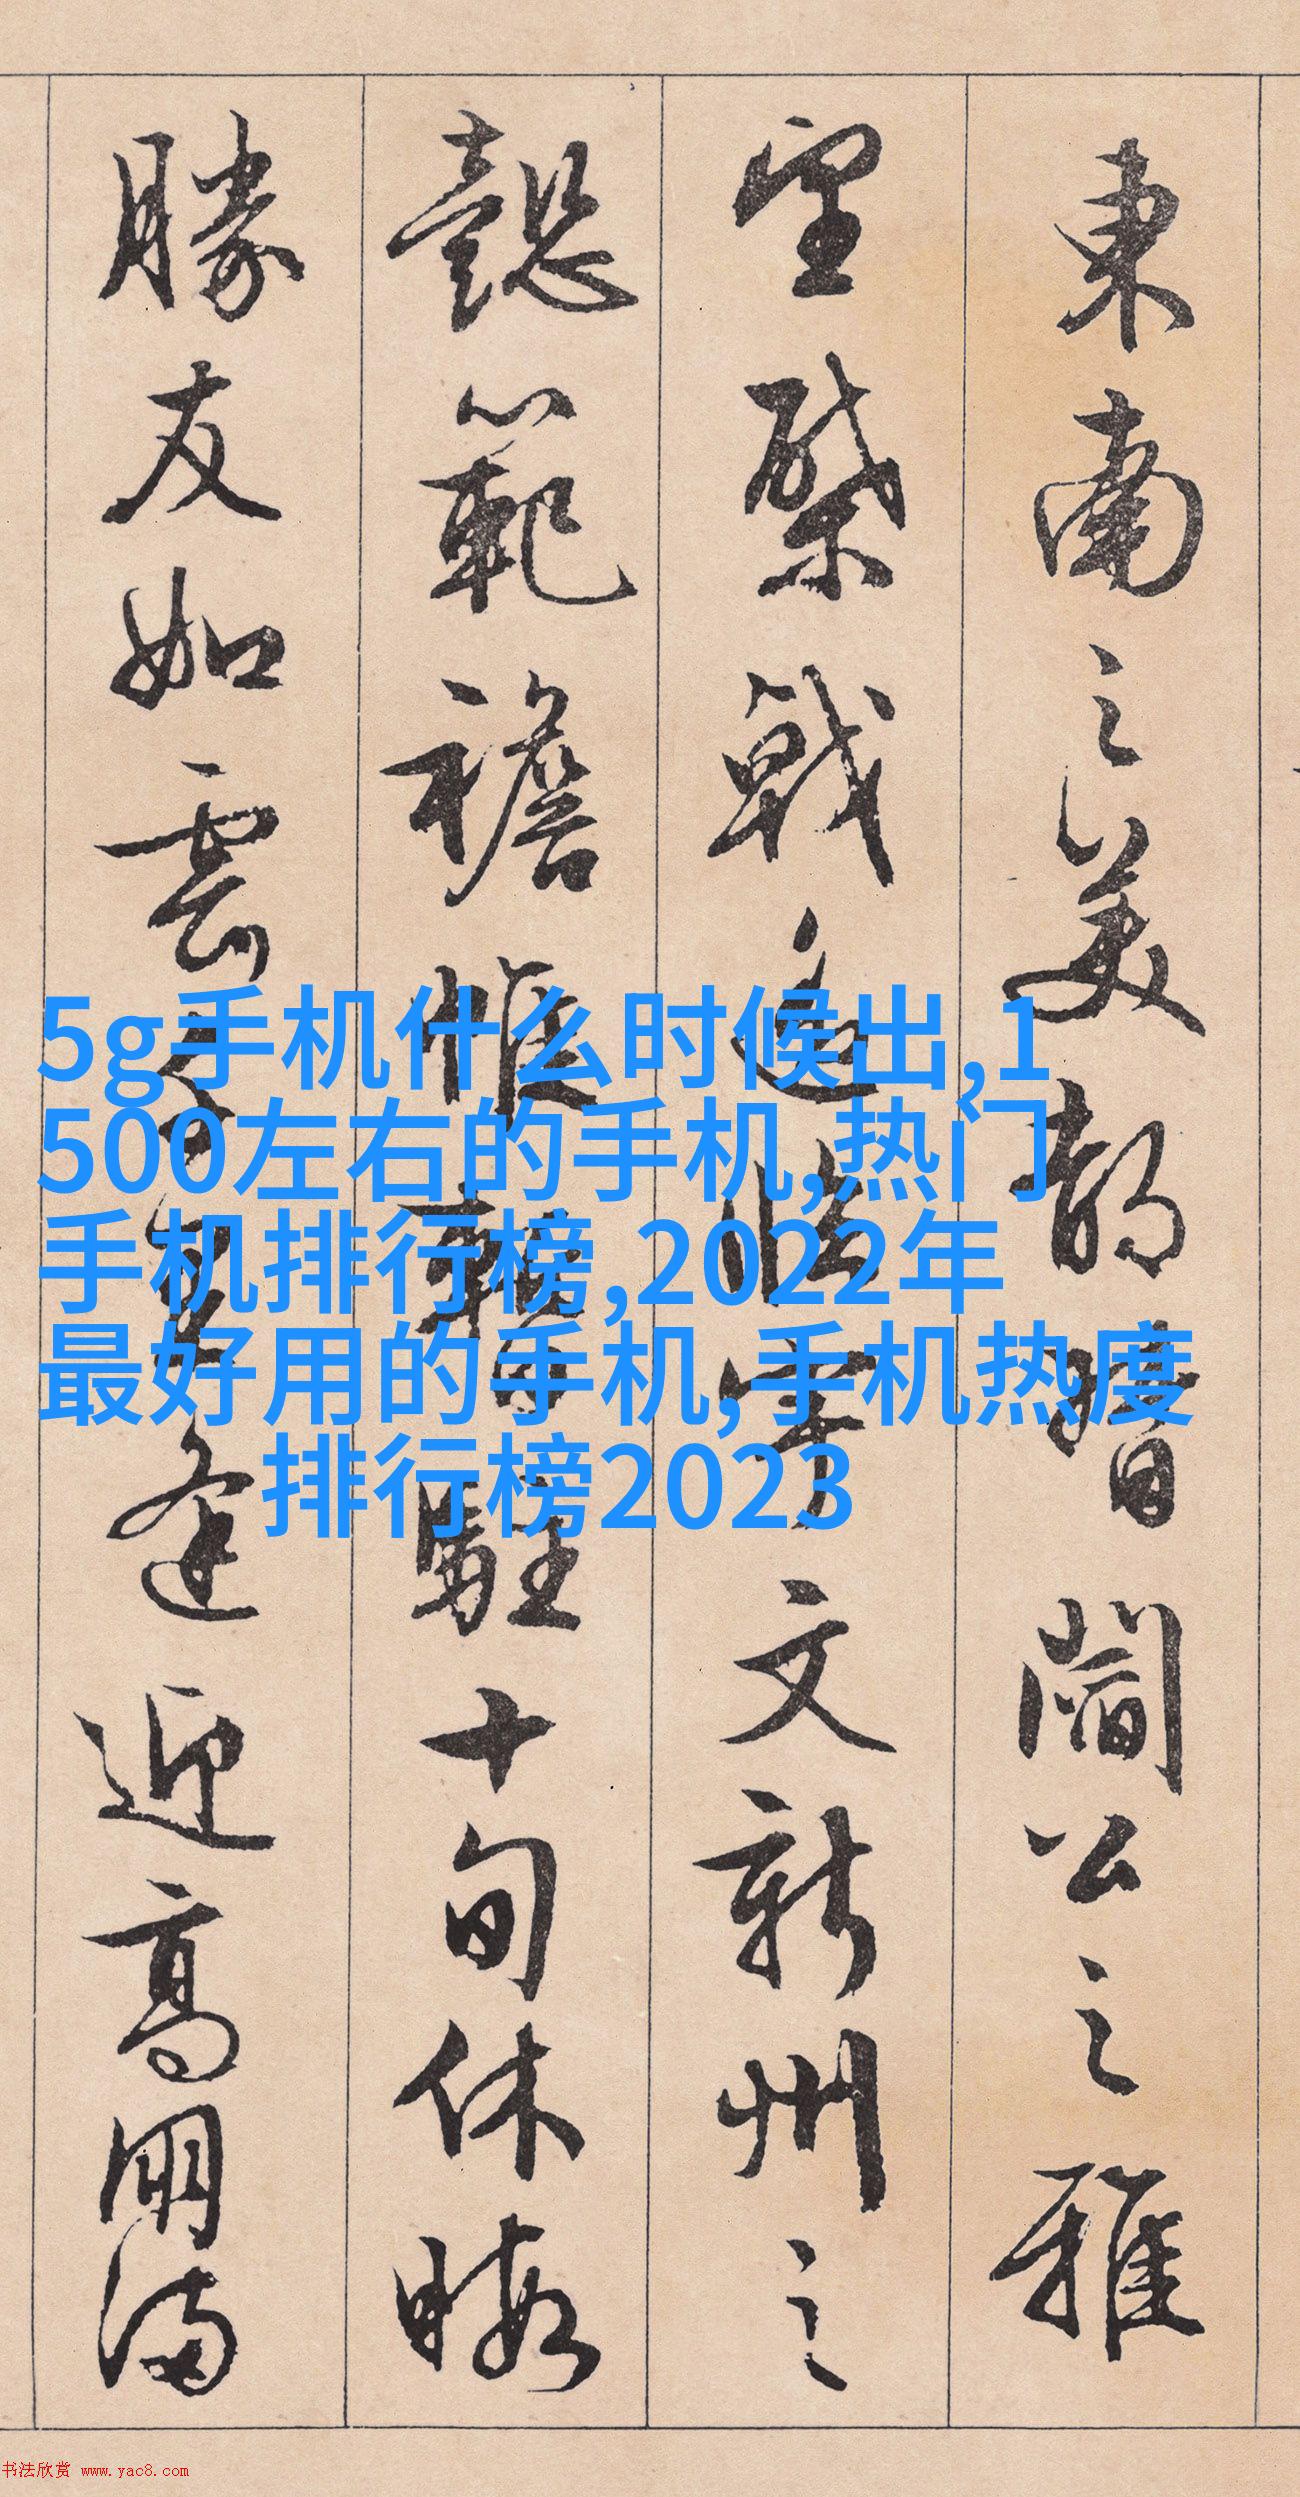 東南之美都督閻公之雅
望棨戟遥臨宇文新州之
懿範襜帷暫駐十旬休暇
勝友如雲千里逢迎高朋滿
5g手机什么时候出,1
500左右的手机,热门
手机排行榜,2022年
最好用的手机,手机热度
排行榜2023
书法欣赏 www.yac8.com